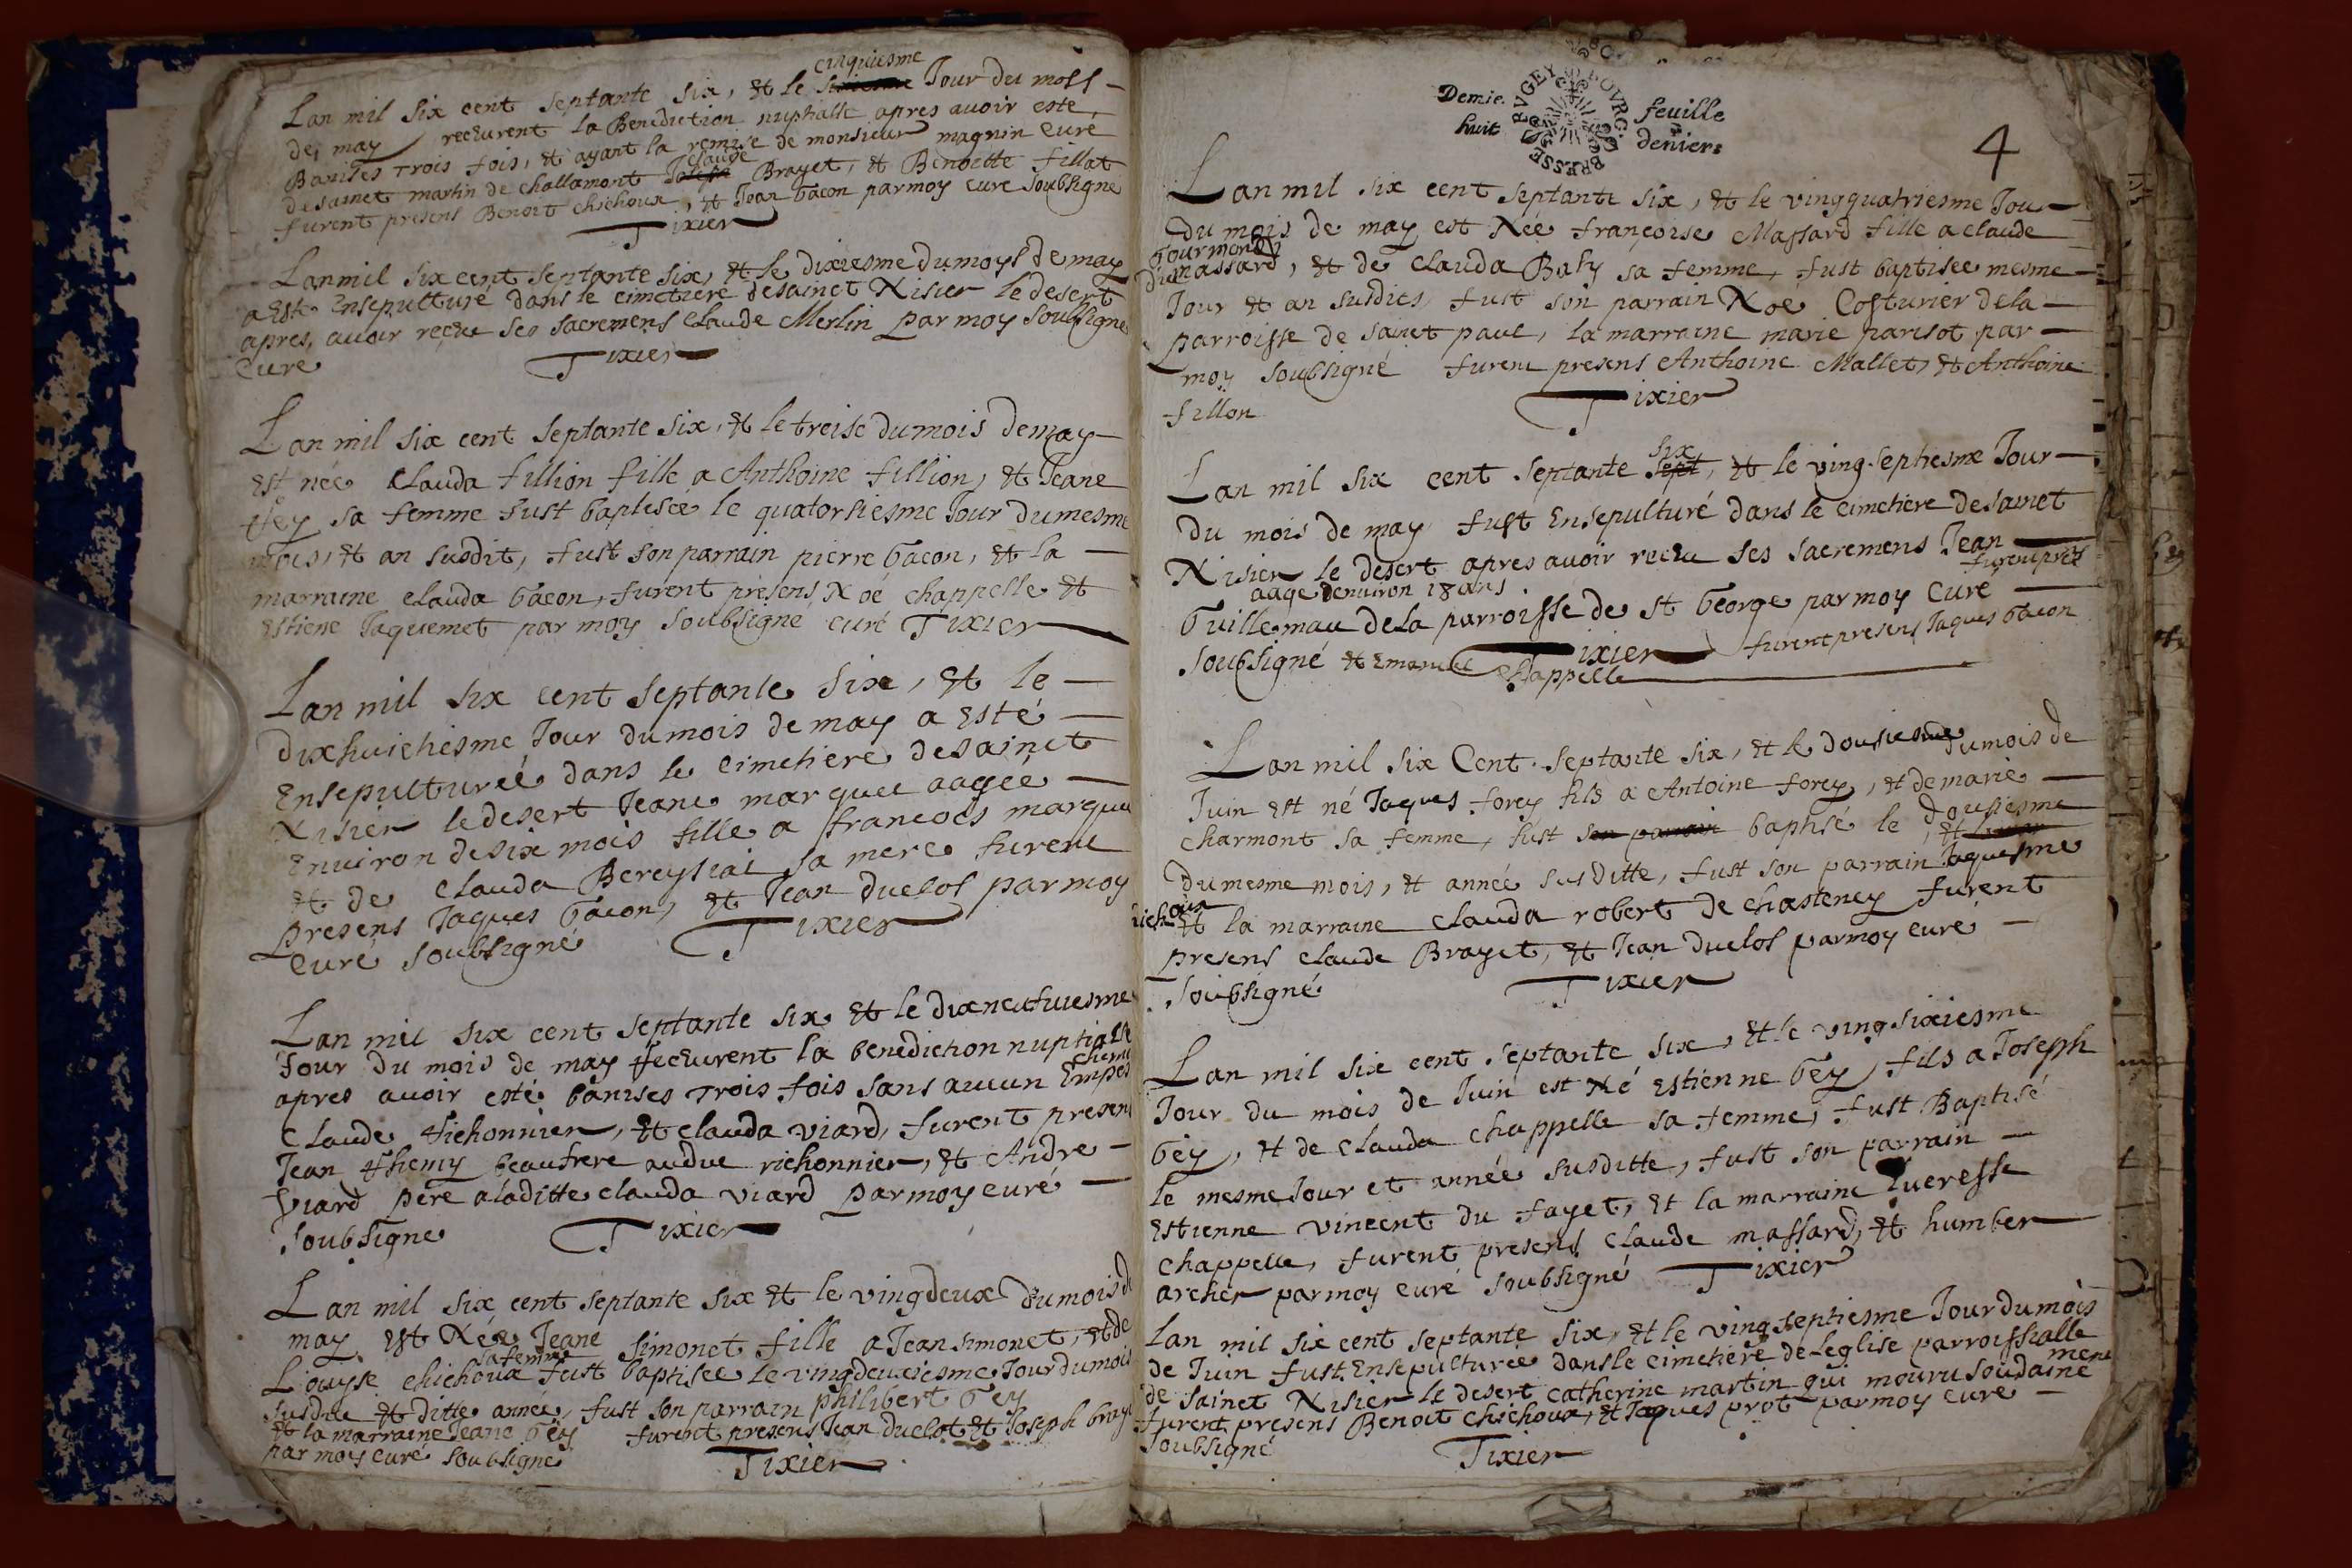 cinquiesme
Lan mil six cent septante six, et le sixiesme Jour du mois
de may receurent la Benediction nuptialle apres avoir esté
Banises trois fois, et ayant la remise de monsieur magnin curé
claude
de sainct martin de challamont Joseph Brayet, et Benoitte fillat
furent presens Benoit chichoux, et Jean bacon par moy curé soubsigné
Tixier
Lan mil six cent septante six, et le dixiesme du moys de may
a Esté Ensepulturé dans le cimetiere de sainct Nisier le desert
apres avoir receu ses sacremens Claude Merlin par moy soubsigné
Curé Tixier
Lan mil six cent septante six, et le treise du mois de may
est née Clauda fillion fille a Anthoine fillion, et Jeane
fey sa femme fust baptisée le quatorsiesme Jour du mesme
mois, et an susdit, fust son parrain pierre bacon, et la
marraine clauda bacon, furent presens Noé chappelle et
Estiene Jaquemet par moy soubsigné curé Tixier
Lan mil six cent septante six, et le
dixhuictiesme Jour du mois de may a Esté
Ensepulturée dans le cimetiere de sainct
Nisier le desert Jeane marquee aagée
Environ de six mois fille a francois marquee
et de Clauda Bereysiat sa mere furent
presens Jaques bacon, et Jean duclos par moy
curé soubsigné Tixier
Lan mil six cent septante six et le dixneufviesme
Jour du mois de may receurent la benediction nuptialle
apres avoir esté banises trois fois sans aucun Empes
chem
Claude richonnier, et clauda viard, furent presens
Jean themy beaufrere audue richonnier, et Andre
viard pere a laditte clauda viard par moy curé
soubsigne Tixier
Lan mil six cent septante six et le vingdeux du mois de
may est Née Jeane Simonet fille a Jean simonet, et de
sa femme
Louyse chichoux fust baptisée le vingdeuxiesme Jour du mois
susdit et ditte année, fust son parrain philibert bey
et la marraine Jeane bey furent presens Jean duclot et Joseph braye
par moy curé soubsigne Tixier
Demie feuille
huit deniers
BUGEY BOURG BRESSE
4
Lan mil six cent septante six, et le vingquatriesme Jou
du mois de may est Née françoise Massard fille a claude
Tourmond
du massard, et de Clauda Baly sa femme, fust baptisée mesme
Jour et an susdits, fust son parrain Noe Costurier de la
parroisse de sainct paul, la marraine marie parisot par
moy soubsigné furent presens Anthoine Mallet, et Anthoine
fillon Tixier
six
Lan mil six cent septante sept, et le ving-septiesme Jour
du mois de may fust Ensepulturé dans le cimetiere de sainct
Nisier le desert apres avoir receu ses sacremens Jean
aage denviron 18 ans furent pres
Guillemau de la parroisse de st George par moy Curé
soubsigné Tixier furent presens Jaques bacon
et Emanuel chappelle
Lan mil six Cent septante six, et le dousiesme du mois de
Juin est né Jaques forey fils a Antoine forey, et de marie
charmont sa femme, fust son parrain baptisé le dousiesme
du mesme mois, et année susditte, fust son parrain Jaquesme
richoux et la marraine Clauda robert de chasteney furent
presens claude Brayet, et Jean duclos par moy curé
soubsigné Tixier
Lan mil six cent septante six, et le vingsixiesme
Jour du mois de Juin est Né Estienne bey, fils a Joseph
bey, et de clauda chappelle sa femme, fust Baptisé
le mesme Jour et année susditte, fust son parrain
Estienne vincent du fayet, et la marraine Eueresse
chappelle, furent presens Claude massard, et humber
archer par moy curé soubsigné Tixier
Lan mil six cent septante six, et le vingseptiesme Jour du mois
de Juin fust Ensepulturée dans le cimetiere de Leglise parroissialle
de sainct Nisier le desert catherine martin qui mouru soudaine
ment
furent presens Benoit chichoux, et Jaques prot par moy curé
soubsigné Tixier